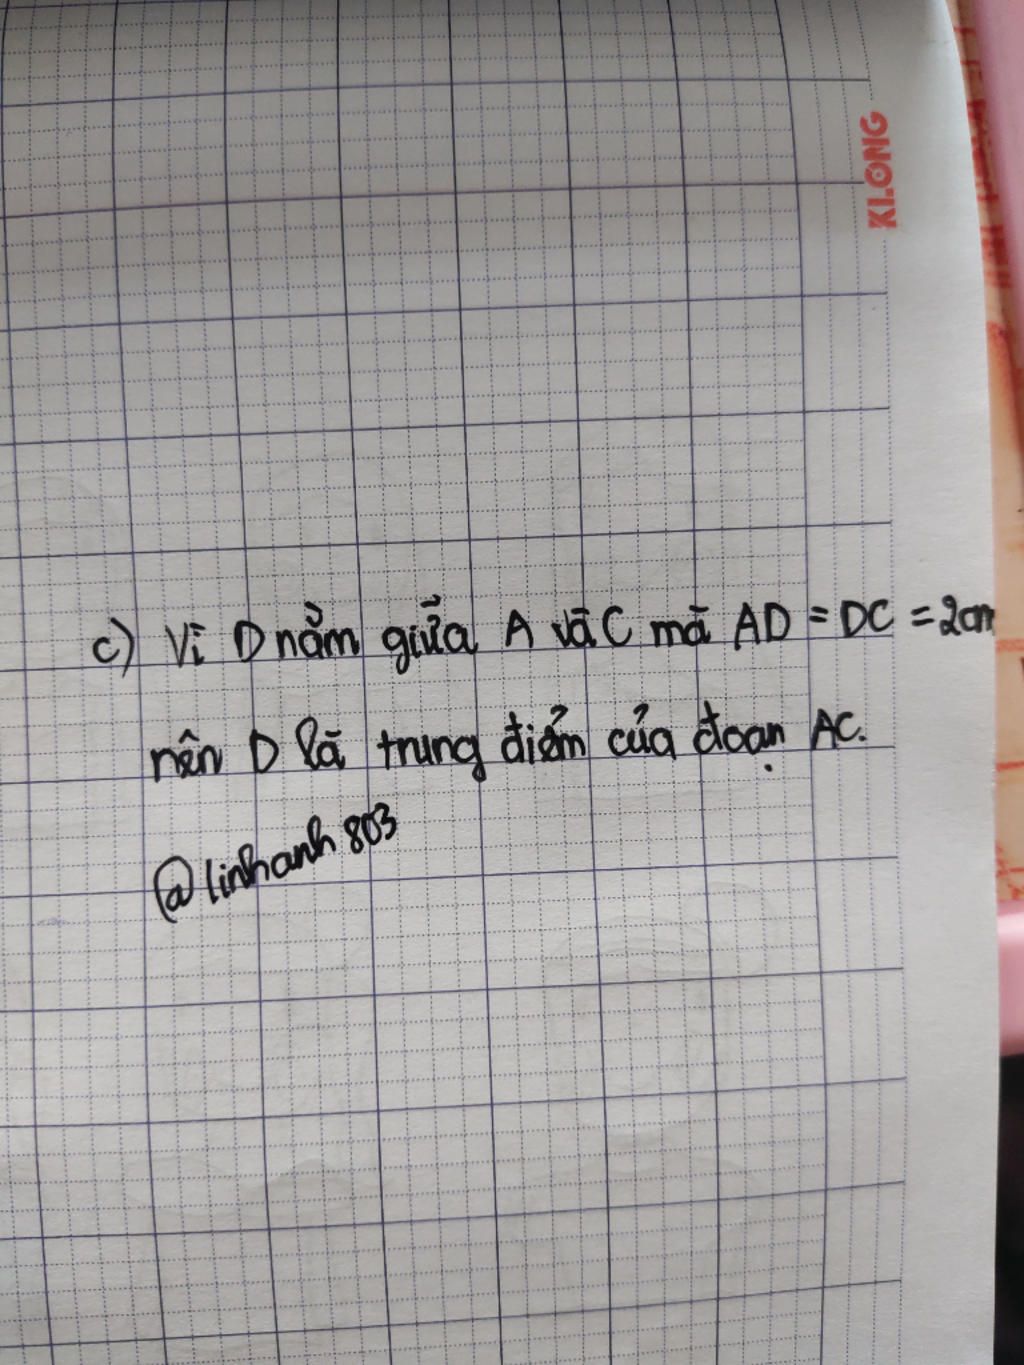 KLONG
c) Vì D nằm giữa A và C mà AD = DC = 2cm
nên D là trung điểm của đoạn AC.
@linhanh803